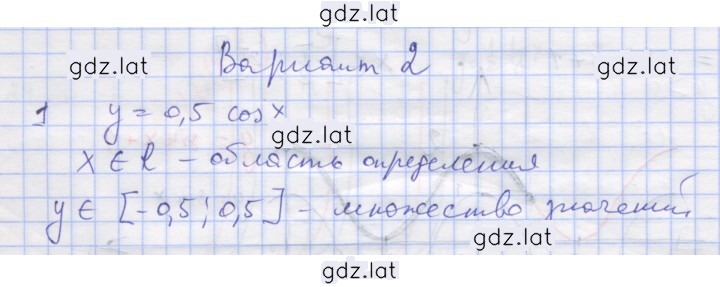 gdz.lat
Вариант 2
gdz.lat
gdz.lat
1 y = 0,5 cos x
gdz.lat
x ∈ R – область определения
y ∈ [-0,5; 0,5] – множество значений
gdz.lat
gdz.lat